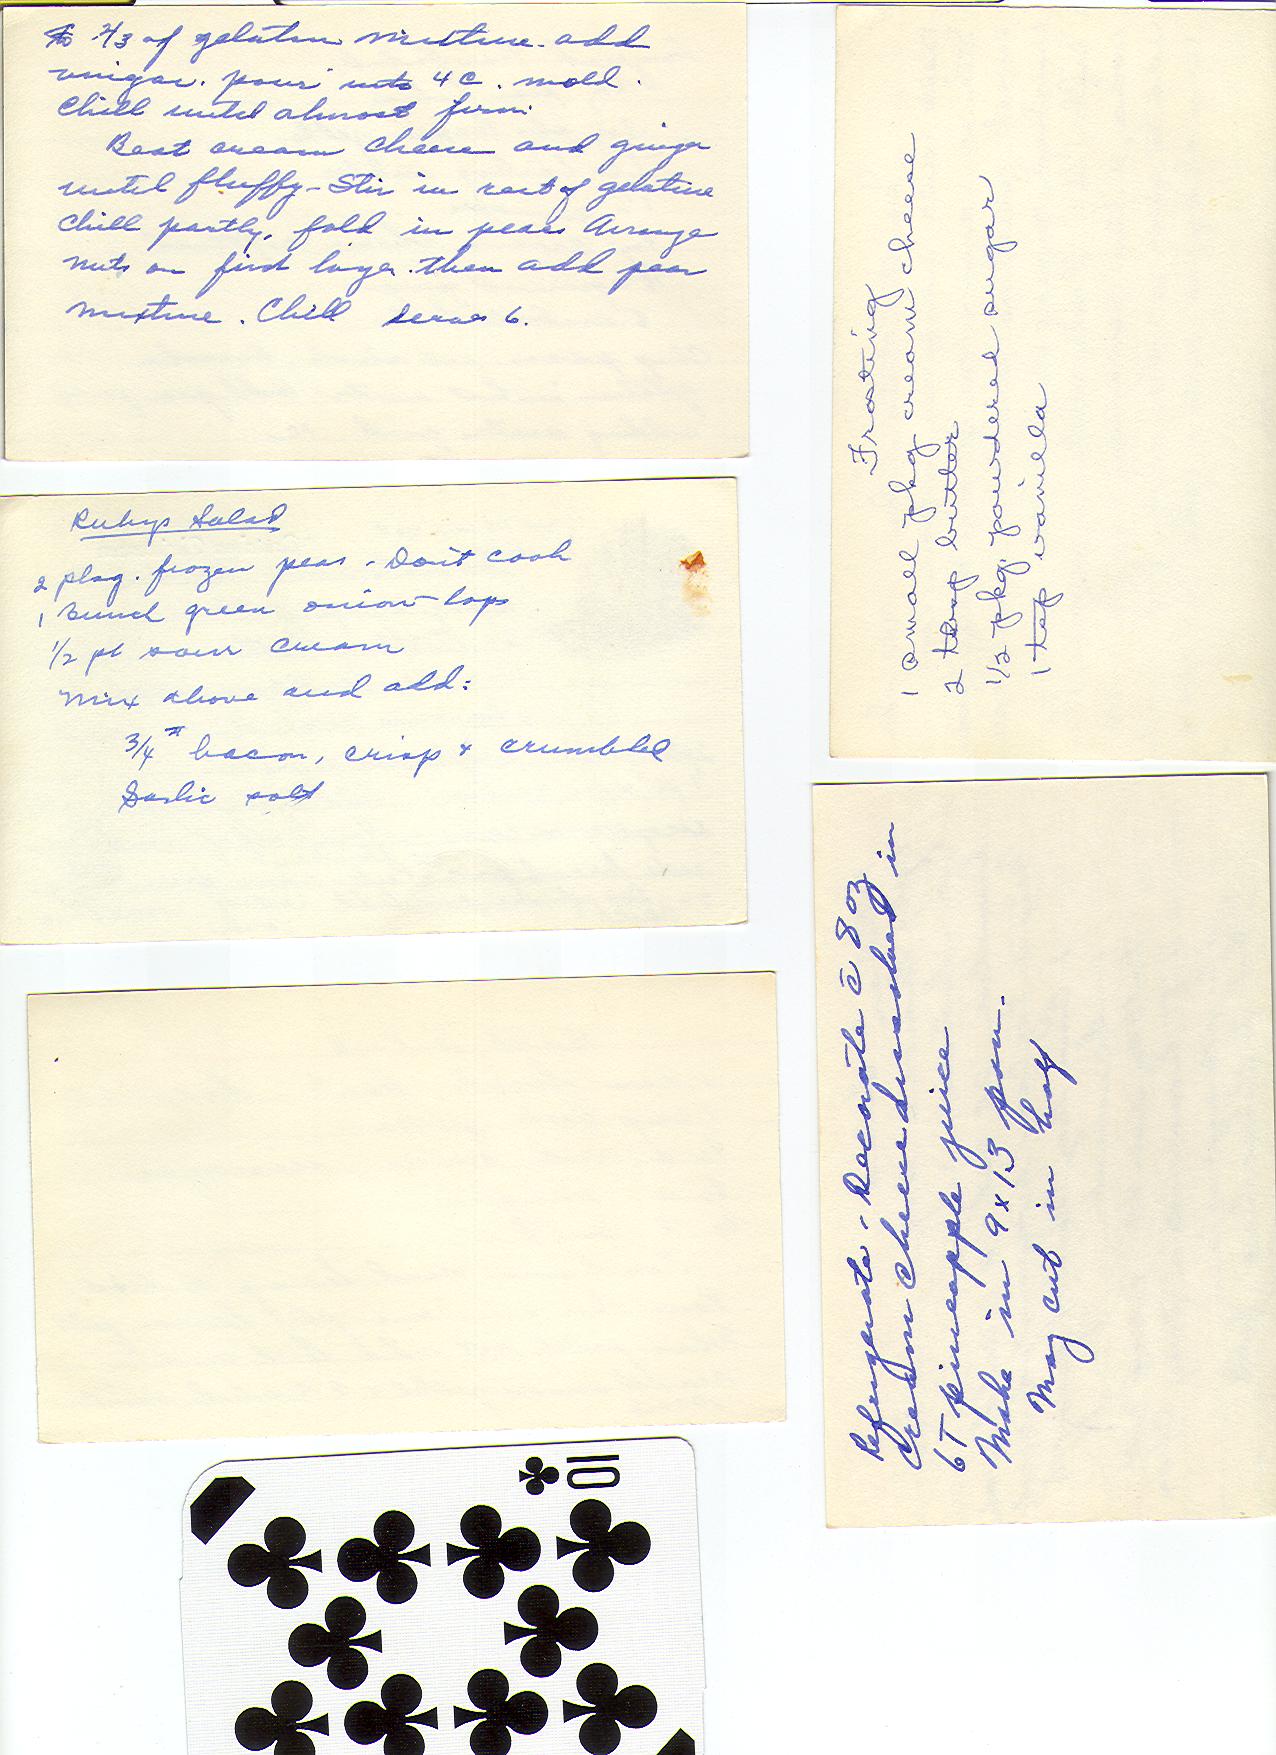 to 2/3 of gelatin mixture. add
vinigar. pour into 4 C. mold.
Chill until almost firm.
Beat cream cheese and ginger
until fluffy - Stir in rest of gelatine
Chill partly, fold in pears Arrange
nuts on first layer. then add pear
mixture. Chill serves 6.
Rubys Salad
2 pkg. frozen peas - Don't cook
1 Bunch green onion-tops
1/2 pt sour cream
Mix above and add:
3/4 # bacon, crisp + crumbled
Garlic salt
Frosting
1 small pkg cream cheese
2 tbsp butter
1/2 pkg. powdered sugar
1 tsp vanilla
Refrigerate - Decorate c̄ 8 oz
Cream Cheese dissolved in
6 T pineapple juice
Make in 9 x 13 pan.
May cut in half
10